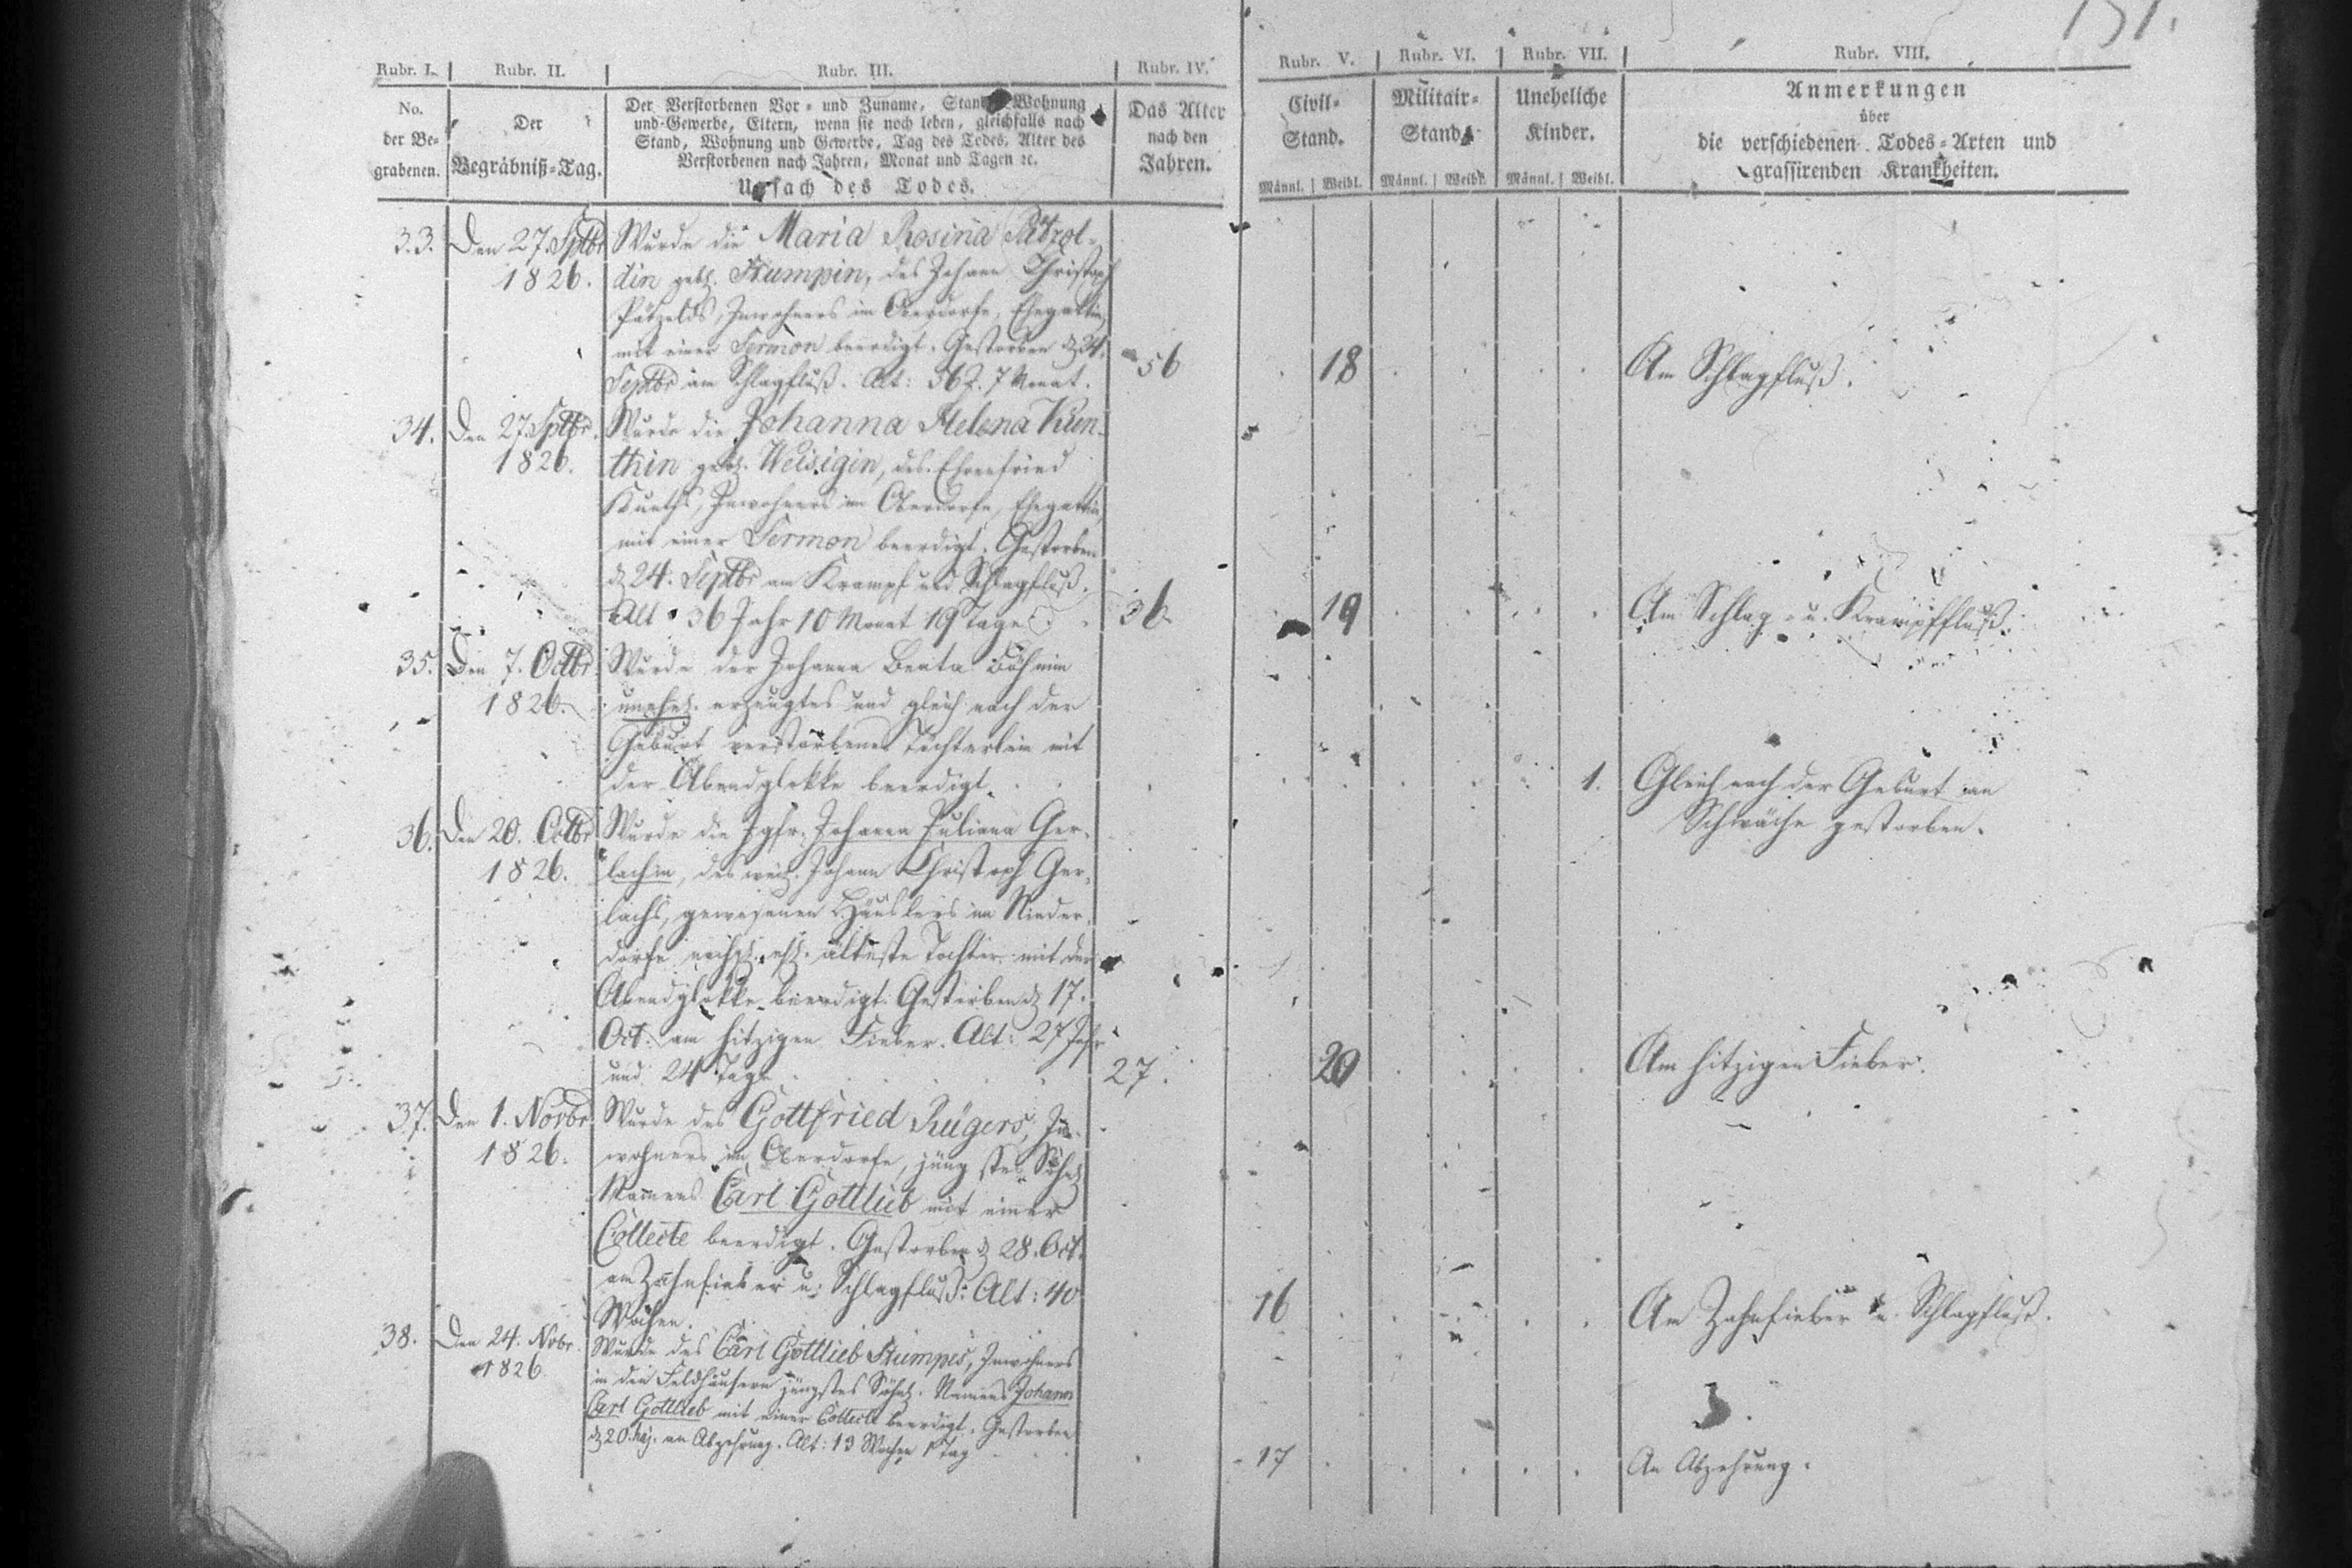 151.
Rubr. I. Rubr. II. Rubr. III. Rubr. IV. Rubr. V. Rubr. VI. Rubr. VII. Rubr. VIII.
No.
der Be-
grabenen.
Der
Begräbniß-Tag.
Der Verstorbenen Vor- und Zuname, Stand, Wohnung
und Gewerbe, Eltern, wenn sie noch leben, gleichfalls nach
Stand, Wohnung und Gewerbe, Tag des Todes, Alter des
Verstorbenen nach Jahren, Monat und Tagen ꝛc.
Ursach des Todes.
Das Alter
nach den
Jahren.
Civil-
Stand.
Männl. Weibl.
Militair-
Stand.
Männl. Weibl.
Uneheliche
Kinder.
Männl. Weibl.
Anmerkungen
über
die verschiedenen Todes-Arten und
grassirenden Krankheiten.
33. Den 27. Septbr
1826.
Wurde die Maria Rosina Pätzol-
din geb. Stumpin, des Johann Christoph
Pätzolds, Inwohners im Oberdorfe, Ehegattin,
mit einer Sermon beerdigt. Gestorben d. 24.
Septbr am Schlagfluß. Alt: 56 J. 7 Monat.
56
18
Am Schlagfluß.
34. Den 27. Septbr.
1826.
Wurde die Johanna Helena Kuen-
thin geb. Weisigin, des Ehrenfried
Kueths, Inwohners im Oberdorfe, Ehegattin,
mit einer Sermon beerdigt. Gestorben
d. 24. Septbr am Krampf und Schlagfluß.
Alt 36 Jahr 10 Monat 19 Tage
36.
19
Am Schlag- u. Krampffluß.
35. Den 7. Octbr
1826.
Wurde der Johanna Beata Böhmin
unehel. erzeugtes und gleich nach der
Geburt verstorbenes Töchterlein mit
der Abendglokke beerdigt.
1.
Gleich nach der Geburt an
Schwäche gestorben.
36. Den 20. Octbr
1826.
Wurde die Jgfr. Johanna Juliana Ger-
lachin, des weil. Johann Christoph Ger-
lachs, gewesenen Häuslers im Nieder-
dorfe nachgel. ehl. älteste Tochter mit der
Abendglokke beerdigt. Gestorben d. 17.
Oct. am hitzigen Fieber. Alt: 27 Jahr
und 24 Tage
27.
20
Am hitzigen Fieber.
37. Den 1. Novbr
1826.
Wurde des Gottfried Rügers, In-
wohners im Oberdorfe, jüngstes Söhnl.
Namens Carl Gottlieb mit einer
Collecte beerdigt. Gestorben d. 28. Oct.
am Zahnfieber u. Schlagfluß: Alt: 40
Wochen.
16
Am Zahnfieber u. Schlagfluß.
38. Den 24. Novbr.
1826
Wurde des Carl Gottlieb Stumpes, Inwohners
in den Feldhäusern jüngstes Söhnl. Namens Johann
Carl Gottlieb mit einer Collecte beerdigt. Gestorben
d. 20. huj. an Abzehrung. Alt: 13 Wochen 1 Tag
17
An Abzehrung.